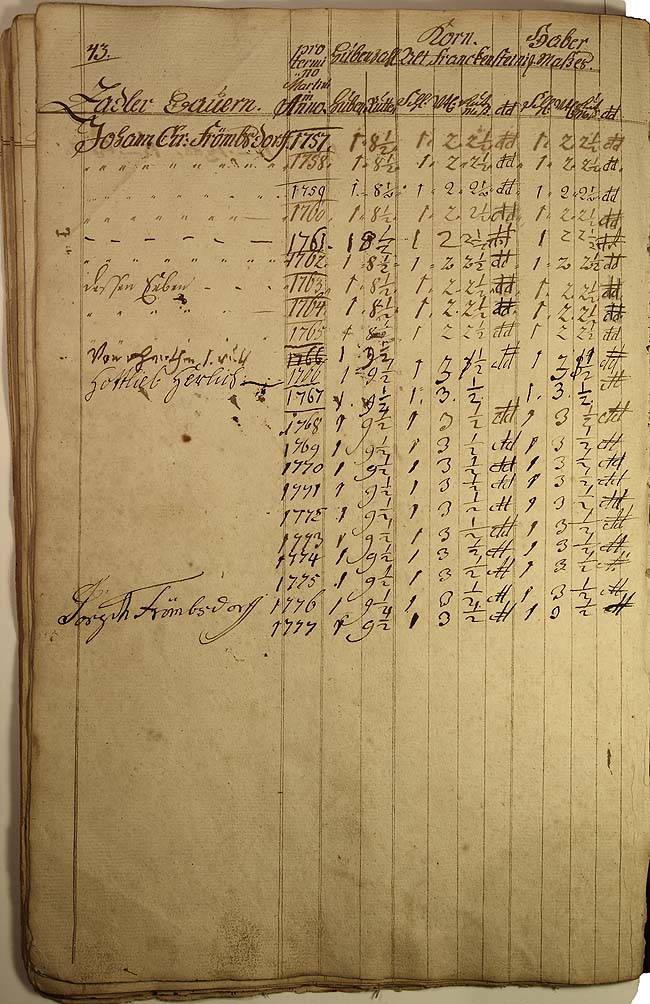 43.
pro Hubenzahl Korn. Haber
termino Alt Franckensteinig Maßes.
Martini
Zadler Bauern. Anno. Huben Rutten Schl. Vrtl dd Schl Vrtl dd
Johann Chr: Frömbsdorff 1757. 1. 8½ 1. 2. 2½ dd 1. 2 2½ dd
" " " " " " 1758. 1. 8½ 1. 2. 2½ dd 1. 2. 2½ dd
" " " " " " 1759 1. 8½ 1. 2. 2½ dd 1. 2. 2½ dd
" " " " " " 1760 1. 8½ 1. 2. 2½ dd 1. 2. 2½ dd
– – – – – – 1761. 1 8½ 1 2 2½ dd 1 2 2½ dd
" " " " " " 1762. 1. 8½ 1. 2 2½ dd 1. 2 2½ dd
dessen Erben – – – 1763. 1. 8½ 1. 2 2½ dd 1. 2 2½ dd
" " " " " 1764. 1. 8½ 1. 2. 2½ dd 1. 2 2½ dd
1765 1 8½ 1 2 2½ dd 1. 2 2½ dd
1766 1 9½
Gottlieb Herlich 1766 1 9½ 1 3 ½ dd 1 3 ½ dd
1767 1. 9¼ 1. 3. ½ 1. 3. ½ dd
1768 1 9½ 1 3 ½ dd 1 3 ½ dd
1769 1 9½ 1 3 ½ dd 1 3 ½ dd
1770 1 9½ 1 3 ½ dd 1 3 ½ dd
1771 1 9½ 1 3 ½ dd 1 3 ½ dd
1772 1 9½ 1 3 ½ dd 1 3 ½ dd
1773 1 9½ 1 3 ½ dd 1 3 ½ dd
1774 1 9½ 1 3 ½ dd 1 3 ½ dd
1775 1 9½ 1 3 ½ dd 1 3 ½ dd
Frömbsdorff 1776 1 9¼ 1 3 ½ dd 1 3 ½ dd
1777 1 9½ 1 3 ½ dd 1 3 ½ dd